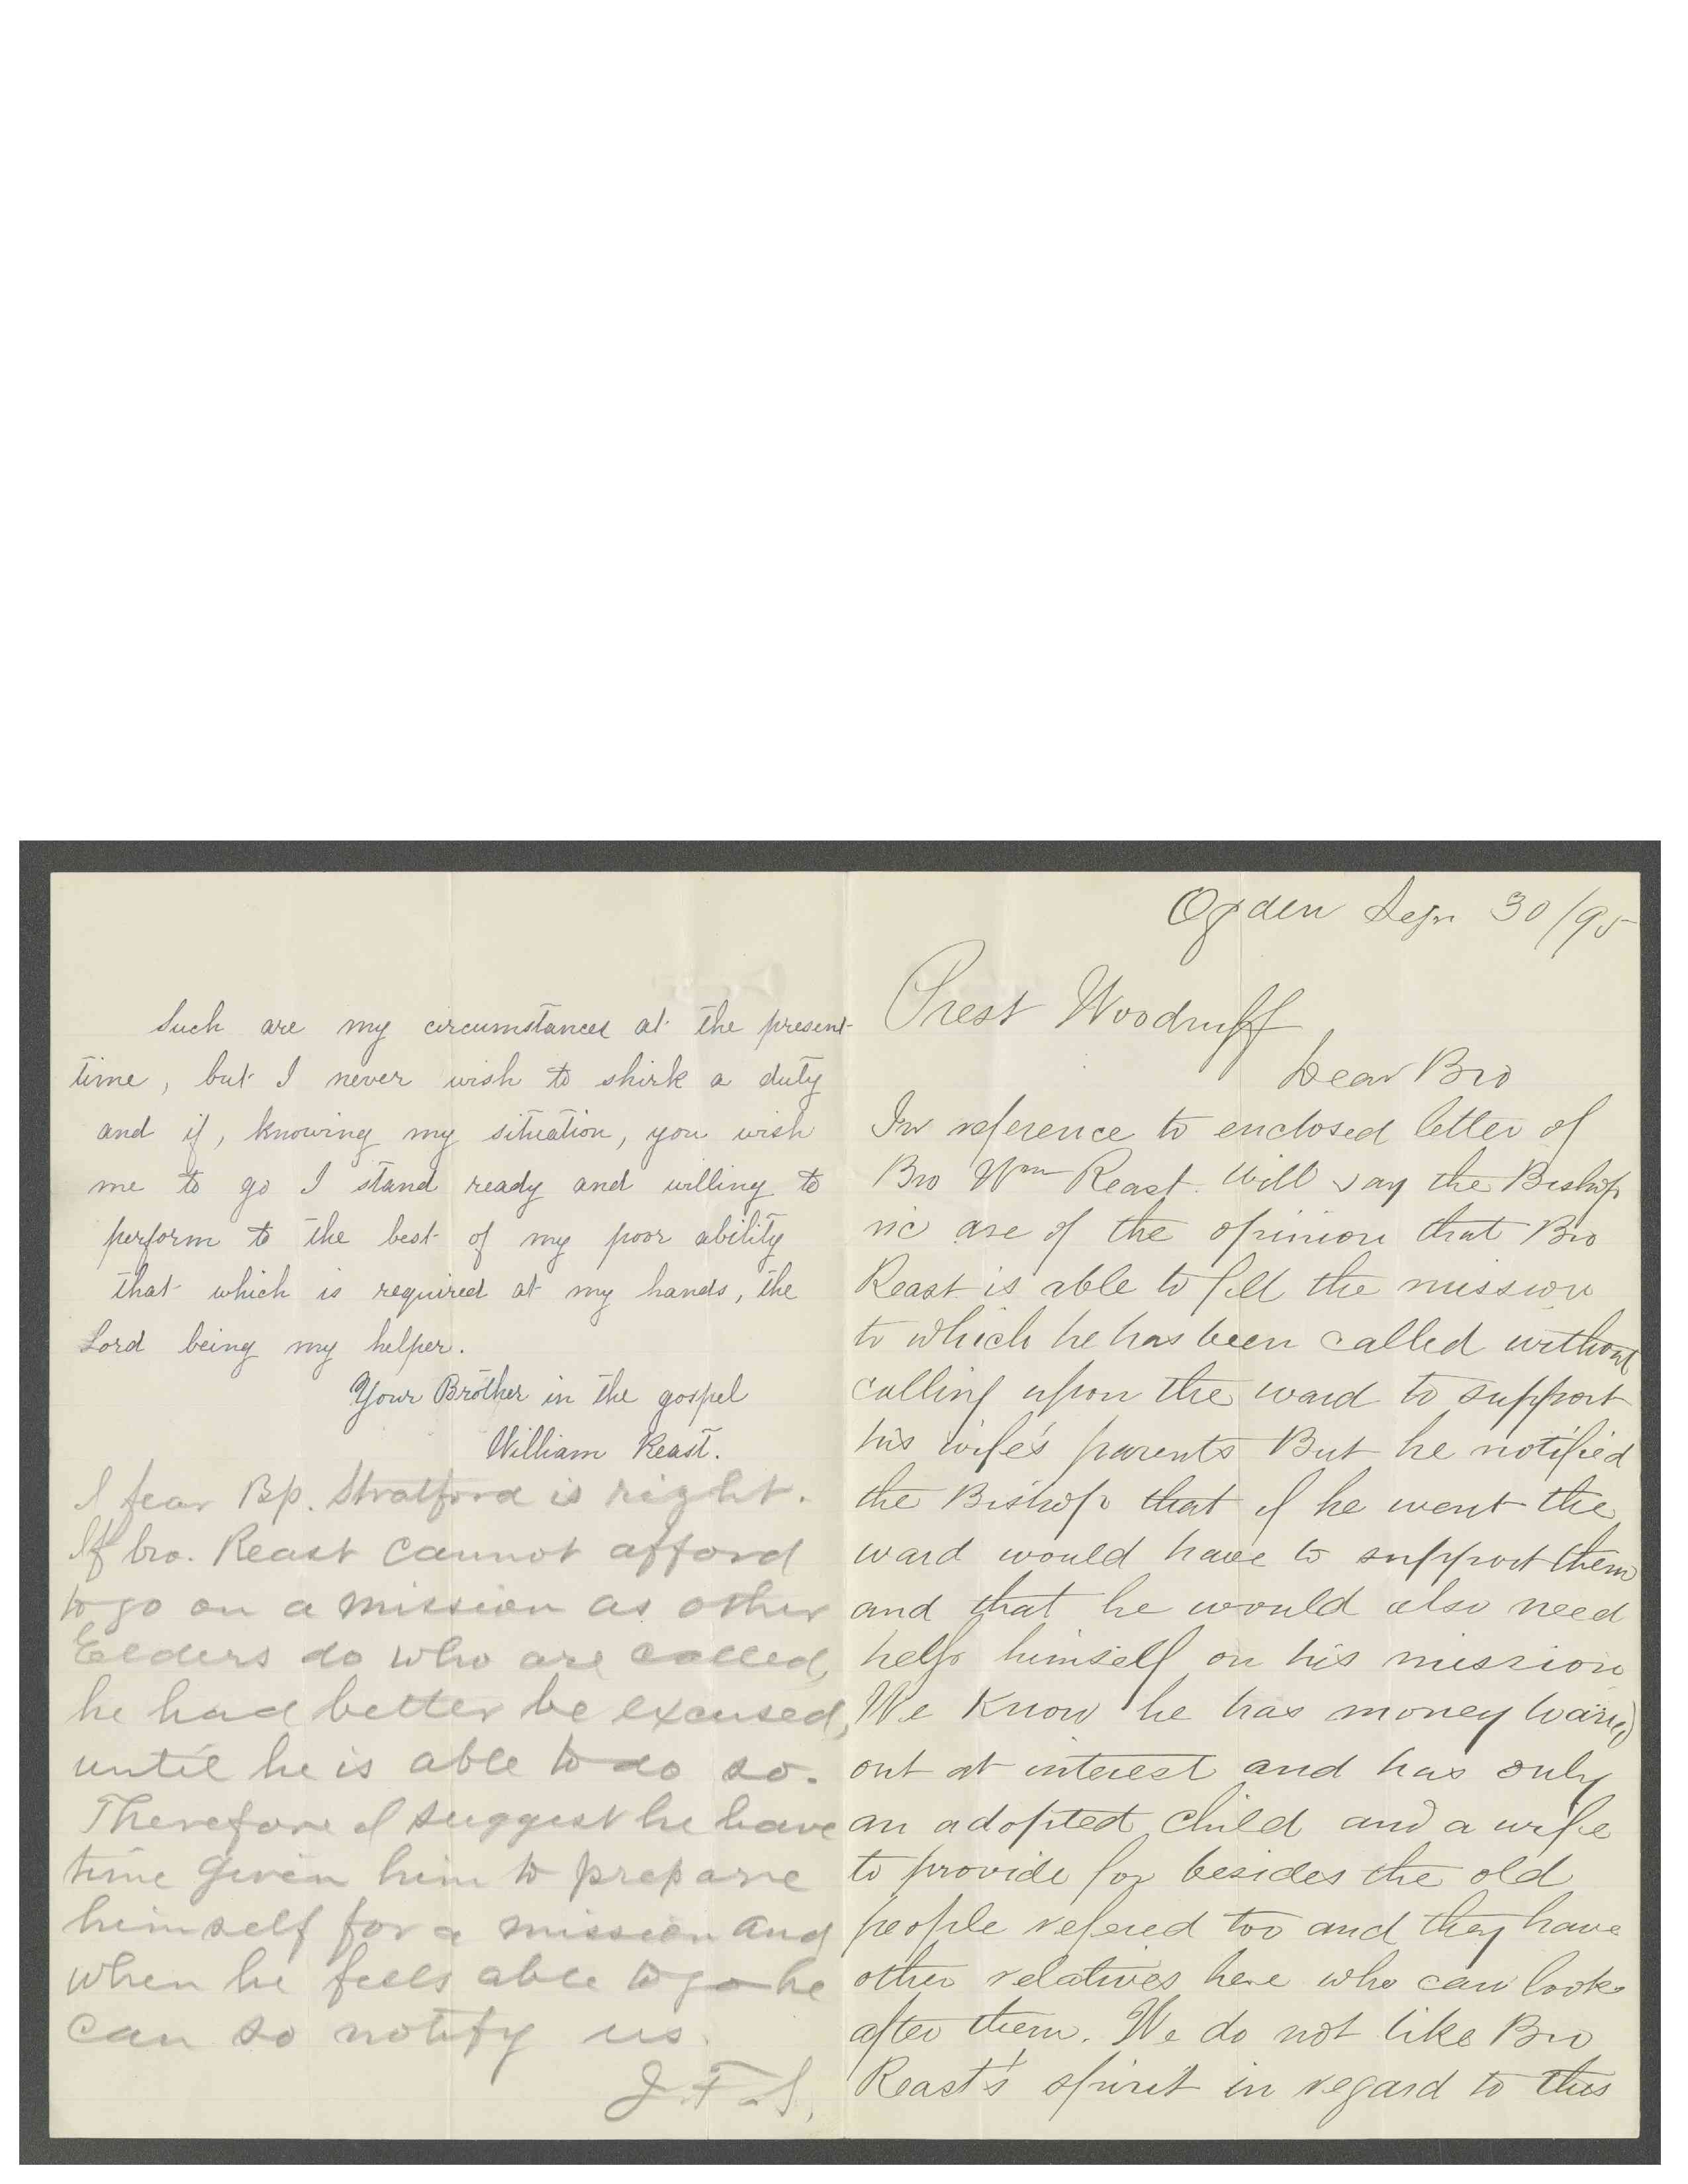 Such are my circumstances at the present
time, but I never wish to shirk a duty
and if, knowing my situation, you wish
me to go I stand ready and willing to
perform to the best of my poor ability
that which is required at my hands, the
Lord being my helper.
Your Brother in the gospel
William Reast.
I fear Bp. Stratford is right.
If bro. Reast cannot afford
to go on a mission as other
Elders do who are called,
he had better be excused,
until he is able to do so.
Therefore I suggest he have
time given him to prepare
himself for a mission and
when he feels able to go he
can so notify us.
J. F. S.
Ogden Sep 30/95
Prest Woodruff
Dear Bro
In reference to enclosed letter of
Bro Wm Reast. Will say the Bishop
ric are of the opinion that Bro
Reast is able to fill the mission
to which he has been called without
calling upon the ward to support
his wife's parents But he notified
the Bishop that if he went the
ward would have to support them
and that he would also need
help himself on his mission
We know he has money
out at interest and has only
an adopted child and a wife
to provide for besides the old
people refered too and they have
other relatives here who can look
after them. We do not like Bro
Reast's spirit in regard to this